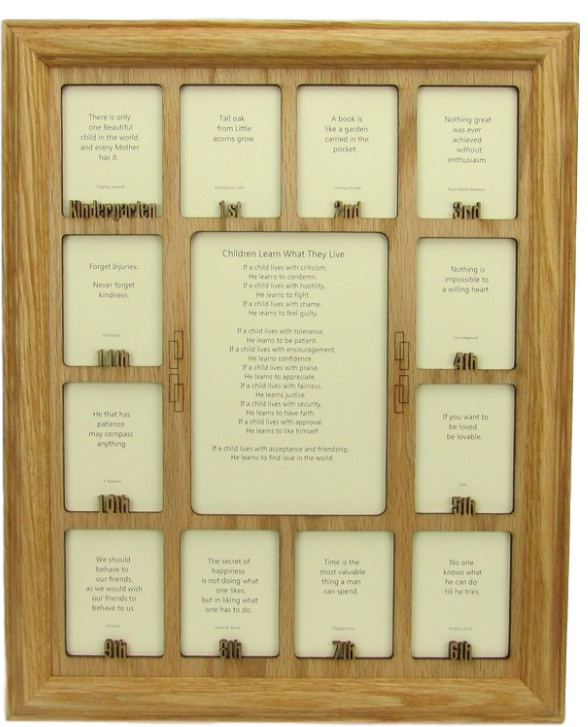 There is only
one Beautiful
child in the world,
and every Mother
has it.
Kindergarten
Tall oak
from Little
acorns grow.
1st
A book is
like a garden
carried in the
pocket.
2nd
Nothing great
was ever
achieved
without
enthusiasm
Ralph Waldo Emerson
3rd
Forget Injuries:
Never forget
kindness.
11th
Children Learn What They Live
If a child lives with criticism,
He learns to condemn.
If a child lives with hostility,
He learns to fight.
If a child lives with shame,
He learns to feel guilty.
If a child lives with tolerance,
He learns to be patient.
If a child lives with encouragement,
He learns confidence.
If a child lives with praise,
He learns to appreciate.
If a child lives with fairness,
He learns justice.
If a child lives with security,
He learns to have faith.
If a child lives with approval,
He learns to like himself
If a child lives with acceptance and friendship,
He learns to find love in the world.
Nothing is
impossible to
a willing heart.
4th
He that has
patience
may compass
anything
10th
If you want to
be loved
be lovable.
5th
We should
behave to
our friends,
as we would wish
our friends to
behave to us.
9th
The secret of
happiness
is not doing what
one likes,
but in liking what
one has to do.
8th
Time is the
most valuable
thing a man
can spend.
7th
No one
knows what
he can do
till he tries.
6th